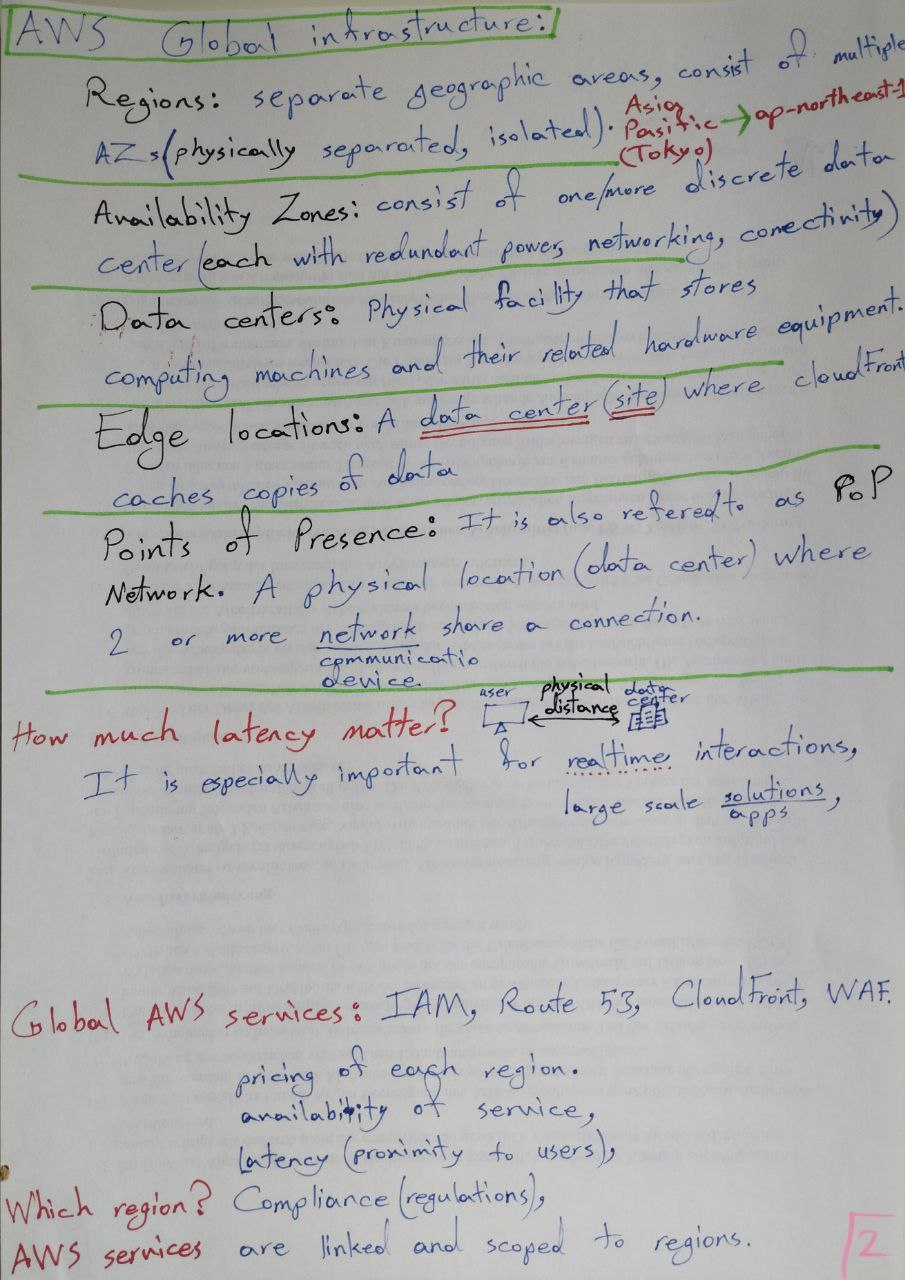 AWS Global infrastructure:
Regions: separate geographic areas, consist of multiple
AZs (physically separated, isolated). Asia Pasific (Tokyo) → ap-northeast-1
Availability Zones: consist of one/more discrete data
center (each with redundant power, networking, conectivity)
Data centers: Physical facility that stores
computing machines and their related hardware equipment.
Edge locations: A data center (site) where cloudFront
caches copies of data
Points of Presence: It is also refered to as PoP
Network. A physical location (data center) where
2 or more network share a connection.
communicatio
device.
user physical distance data center
How much latency matter?
It is especially important for realtime interactions,
large scale solutions
apps,
Global AWS services: IAM, Route 53, CloudFront, WAF.
pricing of each region.
availability of service,
Latency (proximity to users),
Which region? Compliance (regulations),
AWS services are linked and scoped to regions.
2